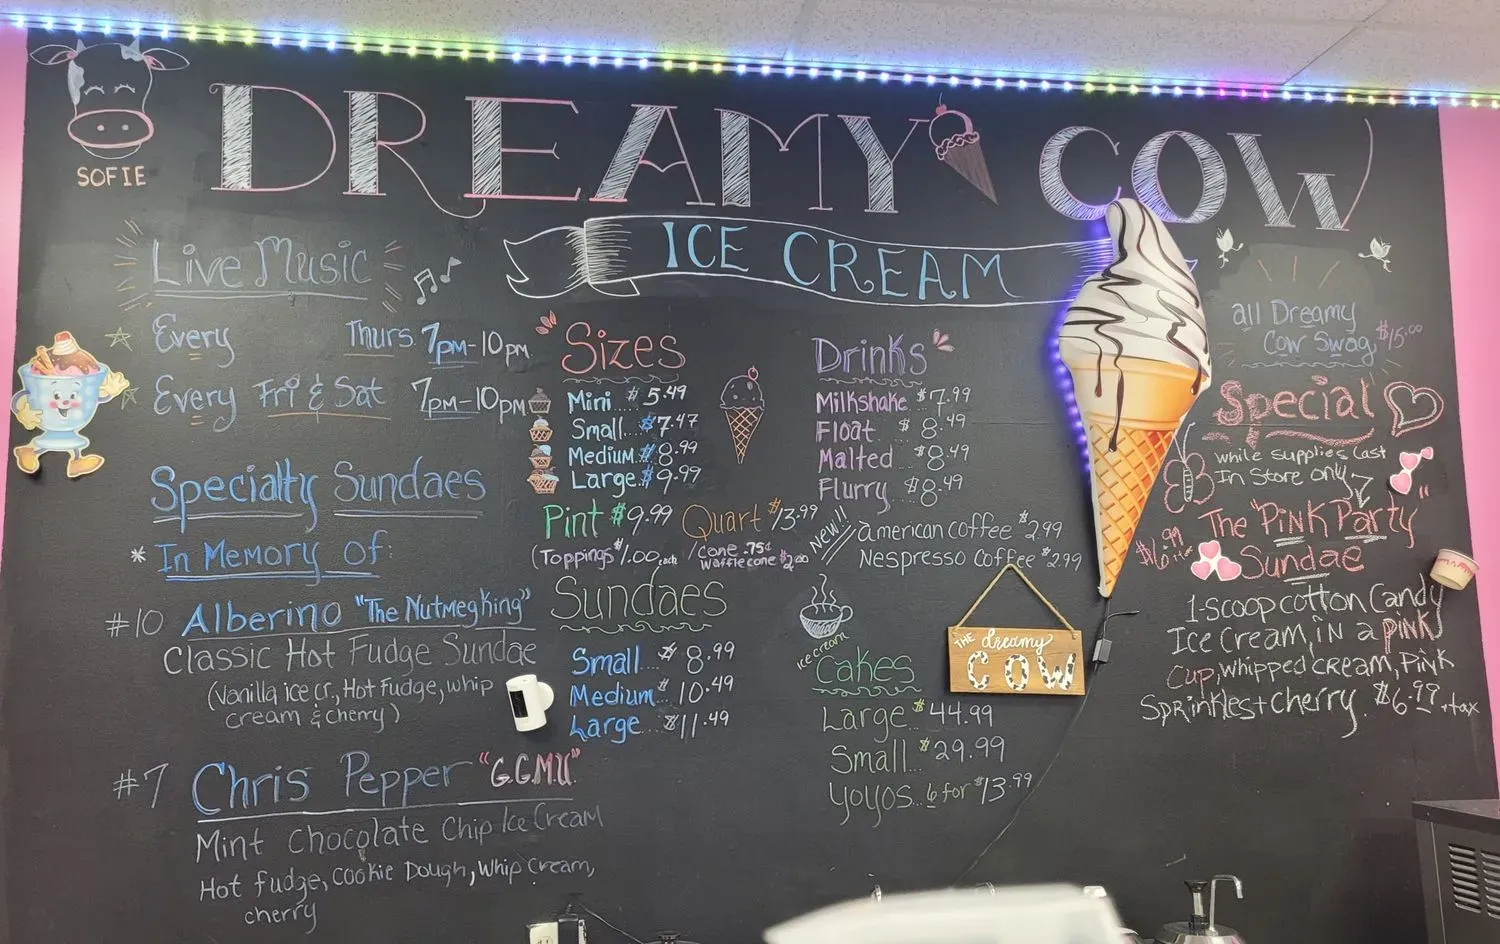 SOFIE
DREAMY COW
ICE CREAM
Live Music
Every Thurs 7pm-10pm
Every Fri & Sat 7pm-10pm
Specialty Sundaes
* In Memory of:
#10 Alberino "The Nutmeg King"
Classic Hot Fudge Sundae
(Vanilla ice cr., Hot Fudge, whip
cream & cherry)
#7 Chris Pepper "G.G.M.U."
Mint Chocolate Chip Ice Cream
Hot fudge, Cookie Dough, Whip Cream,
cherry
Sizes
Mini.... $5.49
Small... $7.47
Medium.. $8.99
Large.. $9.99
Pint $9.99 Quart $13.99
(Toppings $1.00 each / Cone .75¢
Waffle cone $2.00
Sundaes
Small... $8.99
Medium.. $10.49
Large... $11.49
Drinks
Milkshake $7.99
Float ... $8.49
Malted ... $8.49
Flurry .. $8.49
New!! american coffee $2.99
Nespresso Coffee $2.99
ice cream
Cakes
Large $44.99
Small.. $29.99
YoYos.. 6 for $13.99
THE dreamy
COW
all Dreamy
Cow Swag $15.00
Special
while supplies last
In Store only
The "Pink Party"
$6.99 Sundae
1-scoop cotton Candy
Ice Cream, in a pink
Cup, whipped cream, Pink
Sprinkles + Cherry. $6.99 + tax